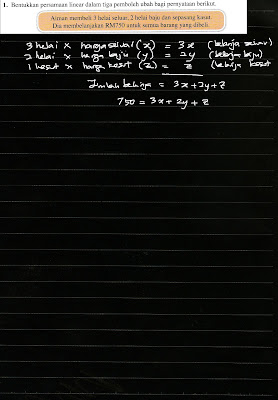 1. Bentukkan persamaan linear dalam tiga pemboleh ubah bagi pernyataan berikut.
Aiman membeli 3 helai seluar, 2 helai baju dan sepasang kasut.
Dia membelanjakan RM750 untuk semua barang yang dibeli.
3 helai × harga seluar (x) = 3x (belanja seluar)
2 helai × harga baju (y) = 2y (belanja baju)
1 kasut × harga kasut (z) = z (belanja kasut
Jumlah belanja = 3x + 2y + z
750 = 3x + 2y + z